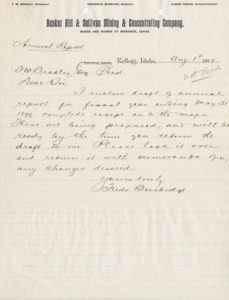 F. W. BRADLEY, PRESIDENT. FREDERICK BURBIDGE, MANAGER. ALBERT BURCH, SUPERINTENDENT.
Bunker Hill & Sullivan Mining & Concentrating Company.
MINES AND WORKS AT WARDNER, IDAHO.
Annual Report
Kellogg, Idaho, Aug 1st 1899
F W Bradley Esq Pres.
Dear Sir:
I enclose draft of annual
report for fiscal year ending May 31
1899 complete except as to the maps
These are being prepared, and will be
ready by the time you return the
draft to me. Please look it over
and return it with memoranda of
any changes desired.
Yours truly
Fredk Burbidge